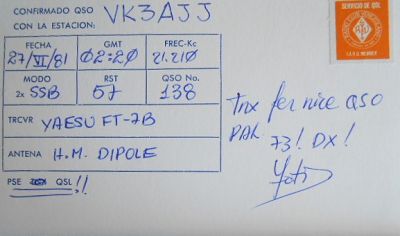 CONFIRMADO QSO
CON LA ESTACION: VK3AJJ
FECHA GMT FREC-Kc
27/VI/81 02:20 21.210
MODO RST QSO No.
2x SSB 57 138
TRCVR YAESU FT-7B
ANTENA H.M. DIPOLE
PSE QSL!!
SERVICIO DE QSL
I.A.R.U. MEMBER
Tnx fer nice QSO
PAL 73! DX!